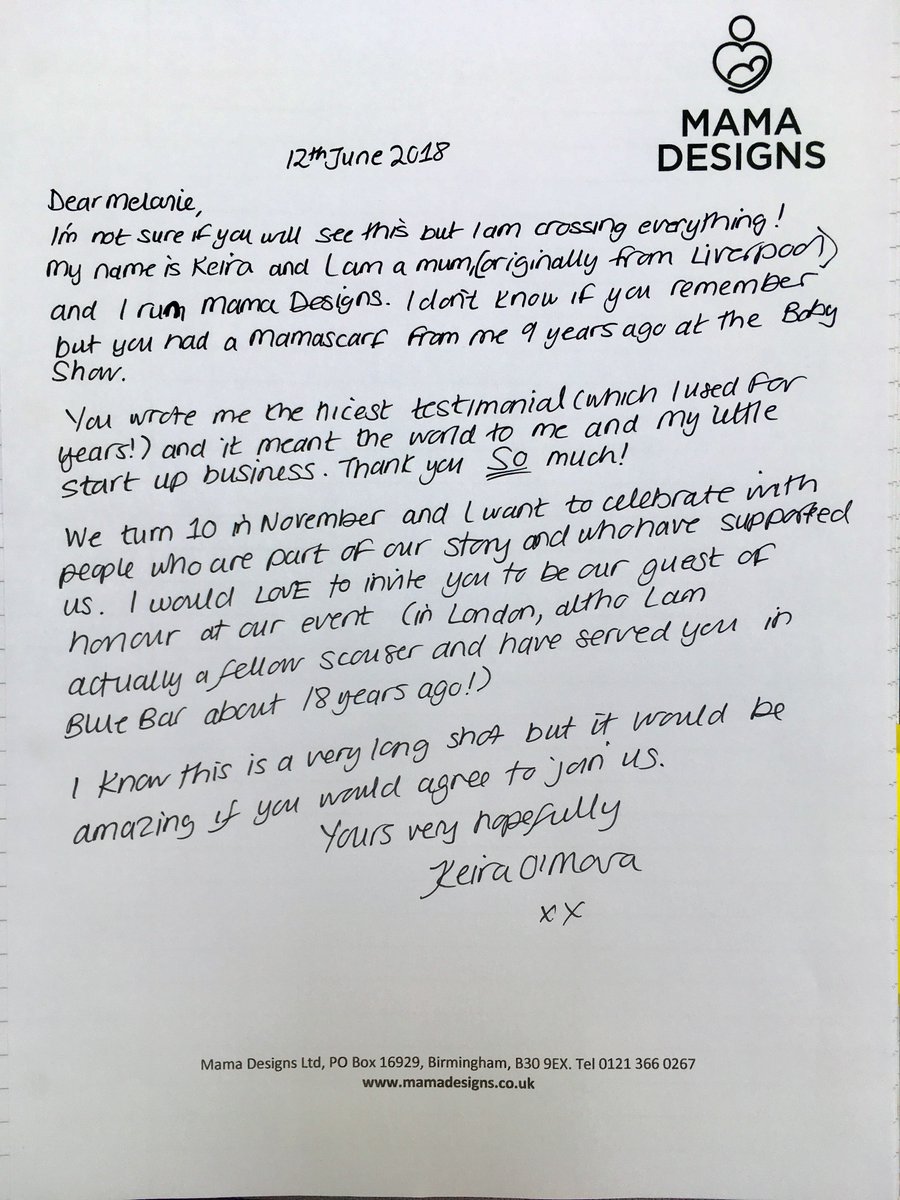 MAMA
DESIGNS
12th June 2018
Dear Melanie,
I'm not sure if you will see this but I am crossing everything!
My name is Keira and I am a mum, (originally from Liverpool)
and I run Mama Designs. I don't know if you remember
but you had a Mamascarf from me 9 years ago at the Baby
Show.
You wrote me the nicest testimonial (which I used for
years!) and it meant the world to me and my little
start up business. Thank you So much!
We turn 10 in November and I want to celebrate with
people who are part of our story and who have supported
us. I would LOVE to invite you to be our guest of
honour at our event (in London, altho I am
actually a fellow scouser and have served you in
Blue Bar about 18 years ago!)
I know this is a very long shot but it would be
amazing if you would agree to join us.
Yours very hopefully
Keira O'Mara
xx
Mama Designs Ltd, PO Box 16929, Birmingham, B30 9EX. Tel 0121 366 0267
www.mamadesigns.co.uk